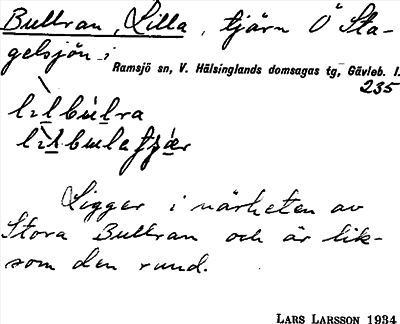 Bullran, Lilla, tjärn O Sta-
gelsjön i
Ramsjö sn, V. Hälsinglands domsagas tg, Gävleb. l.
235
Ligger i närheten av
Stora Bullran och är lik-
som den rund.
LARS LARSSON 1934